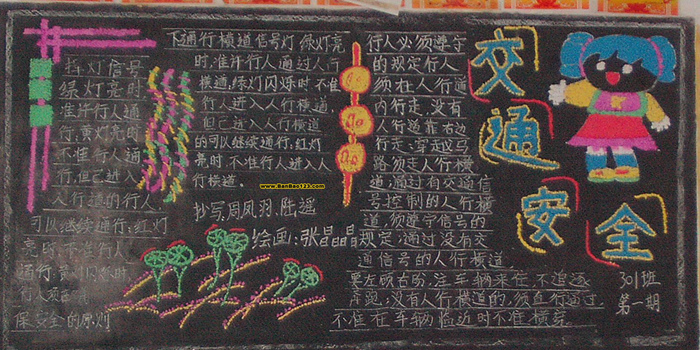 指灯信号
绿灯亮时,
准许行人通
行,黄灯亮时
不准行人通
行,但已进入
人行道的行人
可以继续通行,红灯
亮时,不准行人
通行,黄灯闪烁时,
行人须
保安全的原则
下通行横道信号灯绿灯亮
时,准许行人通过人行
横道,绿灯闪烁时不准
行人进入人行横道,
但已进入人行横道
的可以继续通行,红灯
亮时,不准行人进入人
行横道。
www.BanBao123.com
抄写:周凤羽、陈遥
绘画:张晶晶
行人必须遵守
的规定行人
须在人行道
内行走,没有
人行道靠右边
行走;穿走马
路须走人行横
道;通过有交通信
号控制的人行横
道,须遵守信号的
规定;通过没有交
通信号的人行横道,
要左顾右盼,注车辆来往,不追逐,
奔跑;没有人行横道的,须直行通过,
不准在车辆临近时不准横穿。
交通安全
301班
第一期